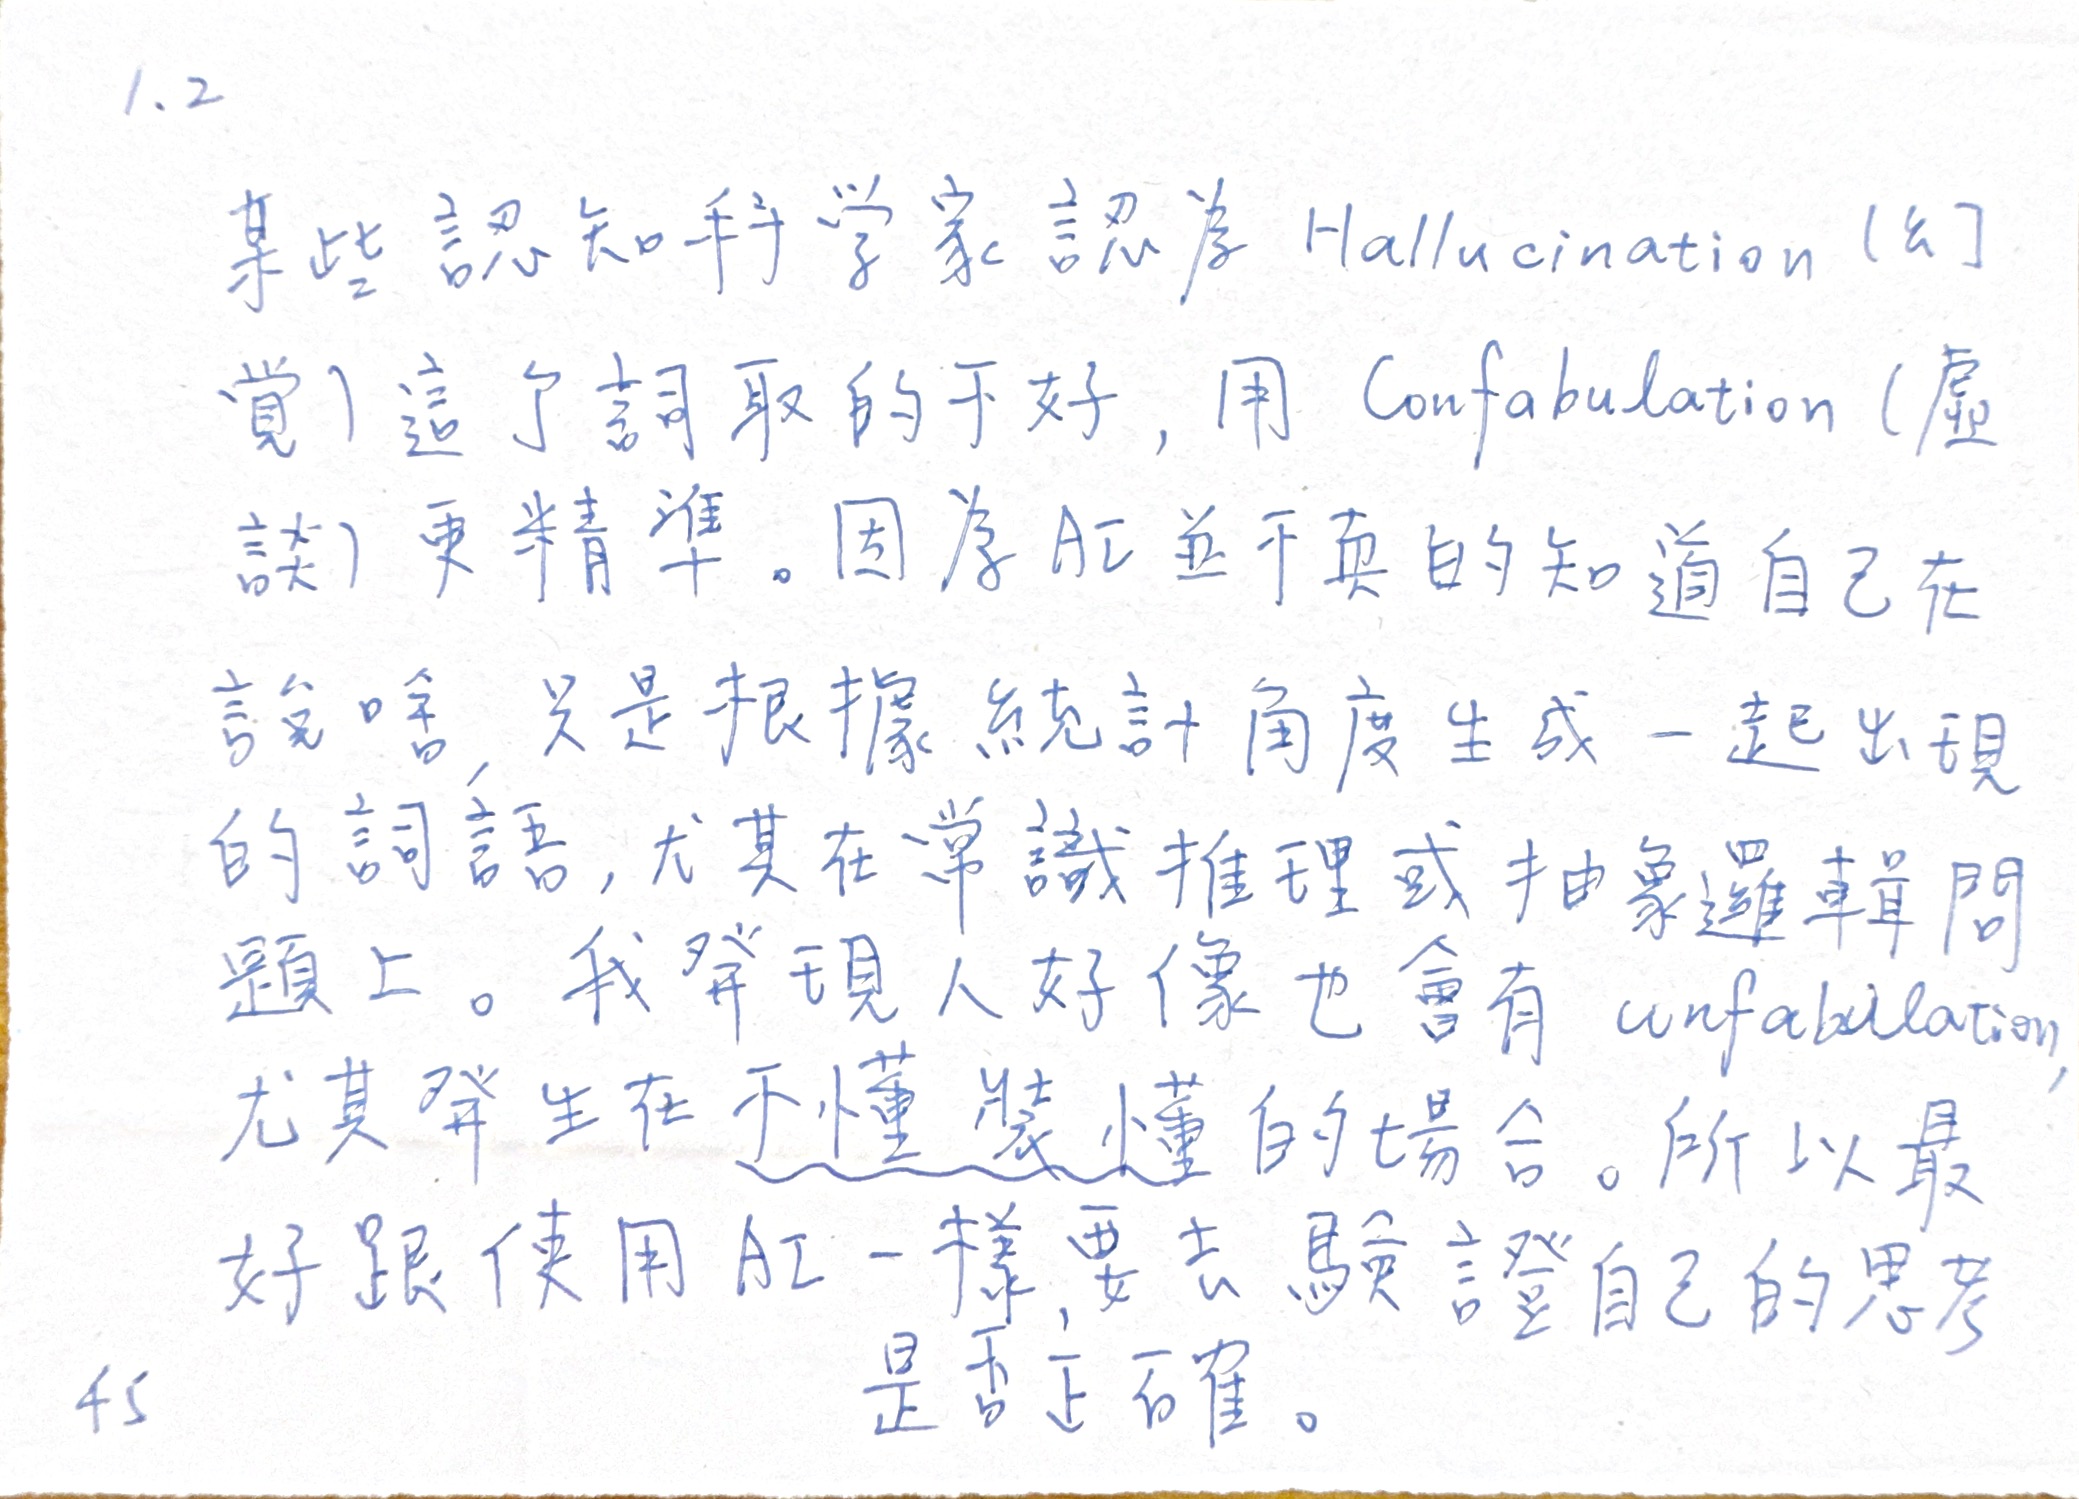 1.2
某些認知科学家認為 Hallucination (幻
覚) 這个詞取的不好, 用 Confabulation (虛
談) 更精準。因為 AI 並不真的知道自己在
說啥, 只是根據統計角度生成一起出現
的詞語, 尤其在常識推理或抽象邏輯問
題上。我発現人好像也會有 confabulation,
尤其発生在不懂裝懂的場合。所以最
好跟使用 AI 一樣, 要去驗證自己的思考
是否正確。
45